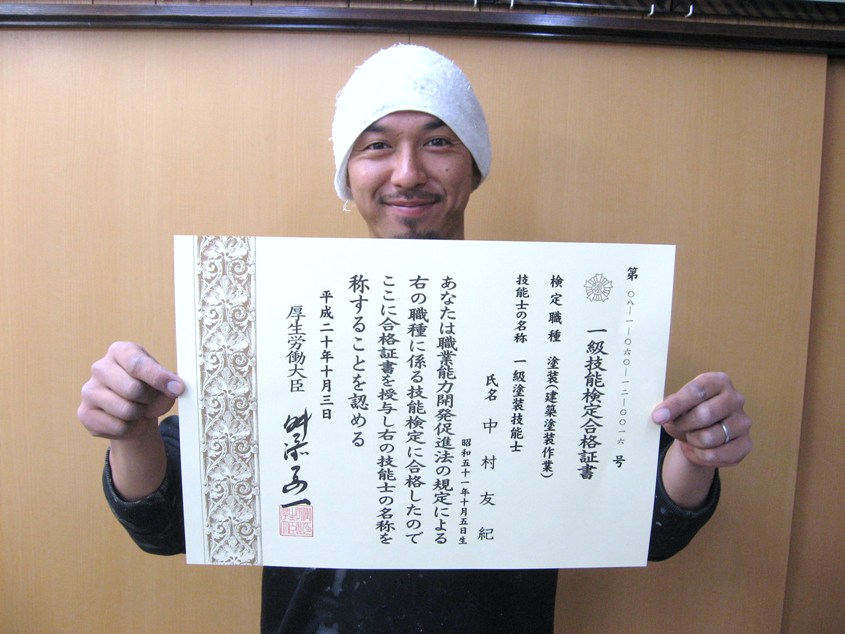 第〇八―一―〇六〇―一二―〇〇一六号
一級技能検定合格証書
検定職種 塗装(建築塗装作業)
技能士の名称 一級塗装技能士
氏名 中村友紀
昭和五十一年十月五日生
あなたは職業能力開発促進法の規定による
右の職種に係る技能検定に合格したので
ここに合格証書を授与し右の技能士の名称を
称することを認める
平成二十年十月三日
厚生労働大臣
舛添要一